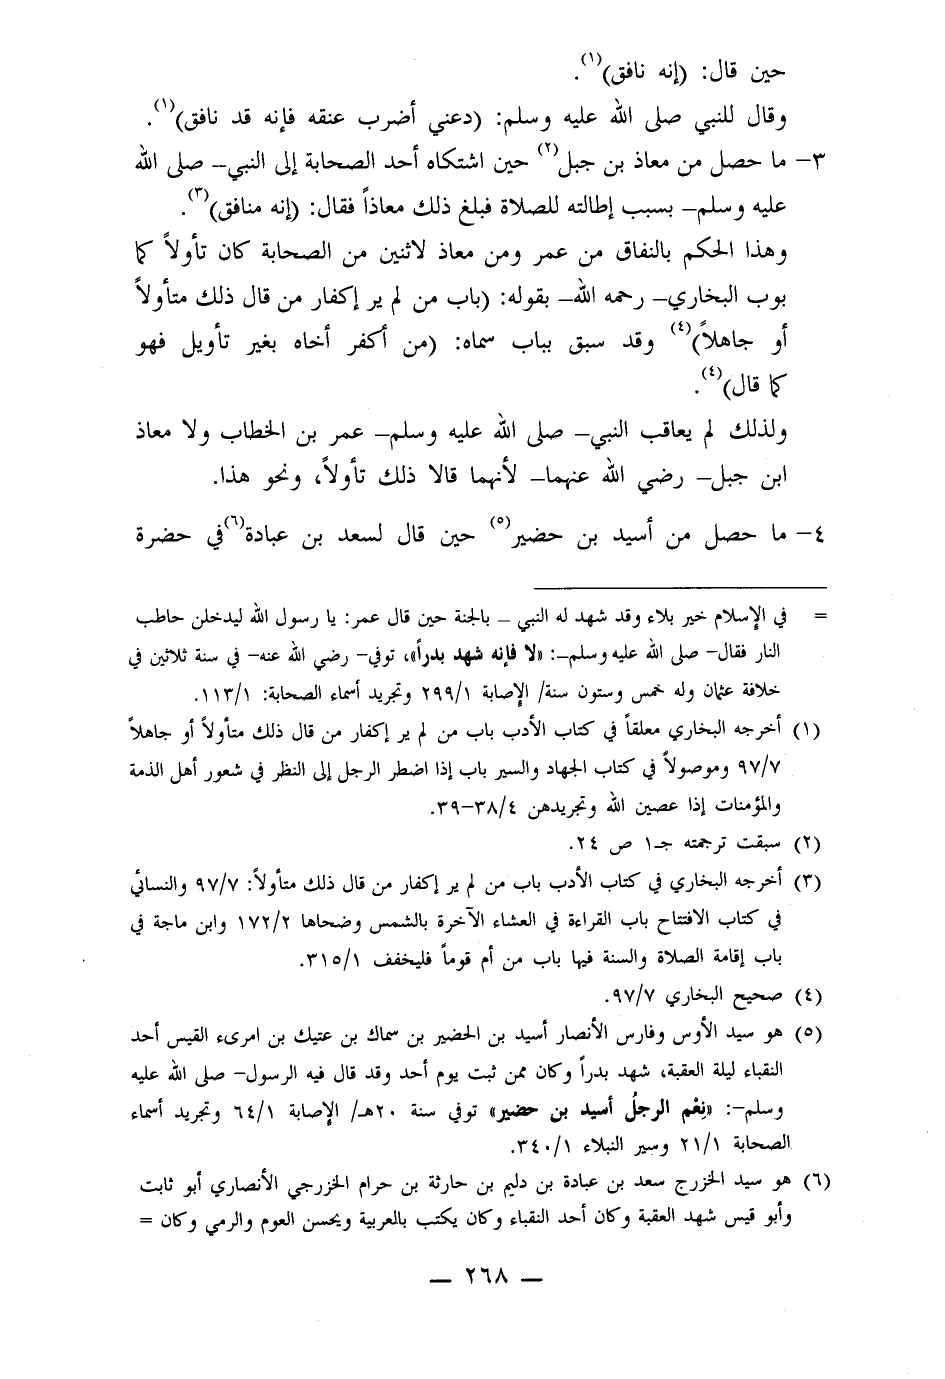 حين قال: (إنه نافق)(١).
وقال للنبي صلى الله عليه وسلم: (دعني أضرب عنقه فإنه قد نافق)(١).
٣- ما حصل من معاذ بن جبل(٢) حين اشتكاه أحد الصحابة إلى النبي- صلى الله
عليه وسلم- بسبب إطالته للصلاة فبلغ ذلك معاذاً فقال: (إنه منافق)(٣).
وهذا الحكم بالنفاق من عمر ومن معاذ لاثنين من الصحابة كان تأولاً كما
بوب البخاري- رحمه الله- بقوله: (باب من لم ير إكفار من قال ذلك متأولاً
أو جاهلاً)(٤) وقد سبق بباب سماه: (من أكفر أخاه بغير تأويل فهو
كما قال)(٤).
ولذلك لم يعاقب النبي- صلى الله عليه وسلم- عمر بن الخطاب ولا معاذ
ابن جبل- رضي الله عنهما- لأنهما قالا ذلك تأولاً، ونحو هذا.
٤- ما حصل من أسيد بن حضير(٥) حين قال لسعد بن عبادة(٦) في حضرة
= في الإسلام خير بلاء وقد شهد له النبي - بالجنة حين قال عمر: يا رسول الله ليدخلن حاطب
النار فقال- صلى الله عليه وسلم-: «لا فإنه شهد بدراً»، توفي- رضي الله عنه- في سنة ثلاثين في
خلافة عثمان وله خمس وستون سنة/ الإصابة ٢٩٩/١ وتجريد أسماء الصحابة: ١١٣/١.
(١) أخرجه البخاري معلقاً في كتاب الأدب باب من لم ير إكفار من قال ذلك متأولاً أو جاهلاً
٩٧/٧ وموصولاً في كتاب الجهاد والسير باب إذا اضطر الرجل إلى النظر في شعور أهل الذمة
والمؤمنات إذا عصين الله وتجريدهن ٣٨/٤-٣٩.
(٢) سبقت ترجمته جـ١ ص ٢٤.
(٣) أخرجه البخاري في كتاب الأدب باب من لم ير إكفار من قال ذلك متأولاً: ٩٧/٧ والنسائي
في كتاب الافتتاح باب القراءة في العشاء الآخرة بالشمس وضحاها ١٧٢/٢ وابن ماجة في
باب إقامة الصلاة والسنة فيها باب من أم قوماً فليخفف ٣١٥/١.
(٤) صحيح البخاري ٩٧/٧.
(٥) هو سيد الأوس وفارس الأنصار أسيد بن الحضير بن سماك بن عتيك بن امرىء القيس أحد
النقباء ليلة العقبة، شهد بدراً وكان ممن ثبت يوم أحد وقد قال فيه الرسول- صلى الله عليه
وسلم-: «نِعْم الرجلُ أسيد بن حضير» توفي سنة ٢٠هـ/ الإصابة ٦٤/١ وتجريد أسماء
الصحابة ٢١/١ وسير النبلاء ٣٤٠/١.
(٦) هو سيد الخزرج سعد بن عبادة بن دليم بن حارثة بن حرام الخزرجي الأنصاري أبو ثابت
وأبو قيس شهد العقبة وكان أحد النقباء وكان يكتب بالعربية ويحسن العوم والرمي وكان =
— ٢٦٨ —